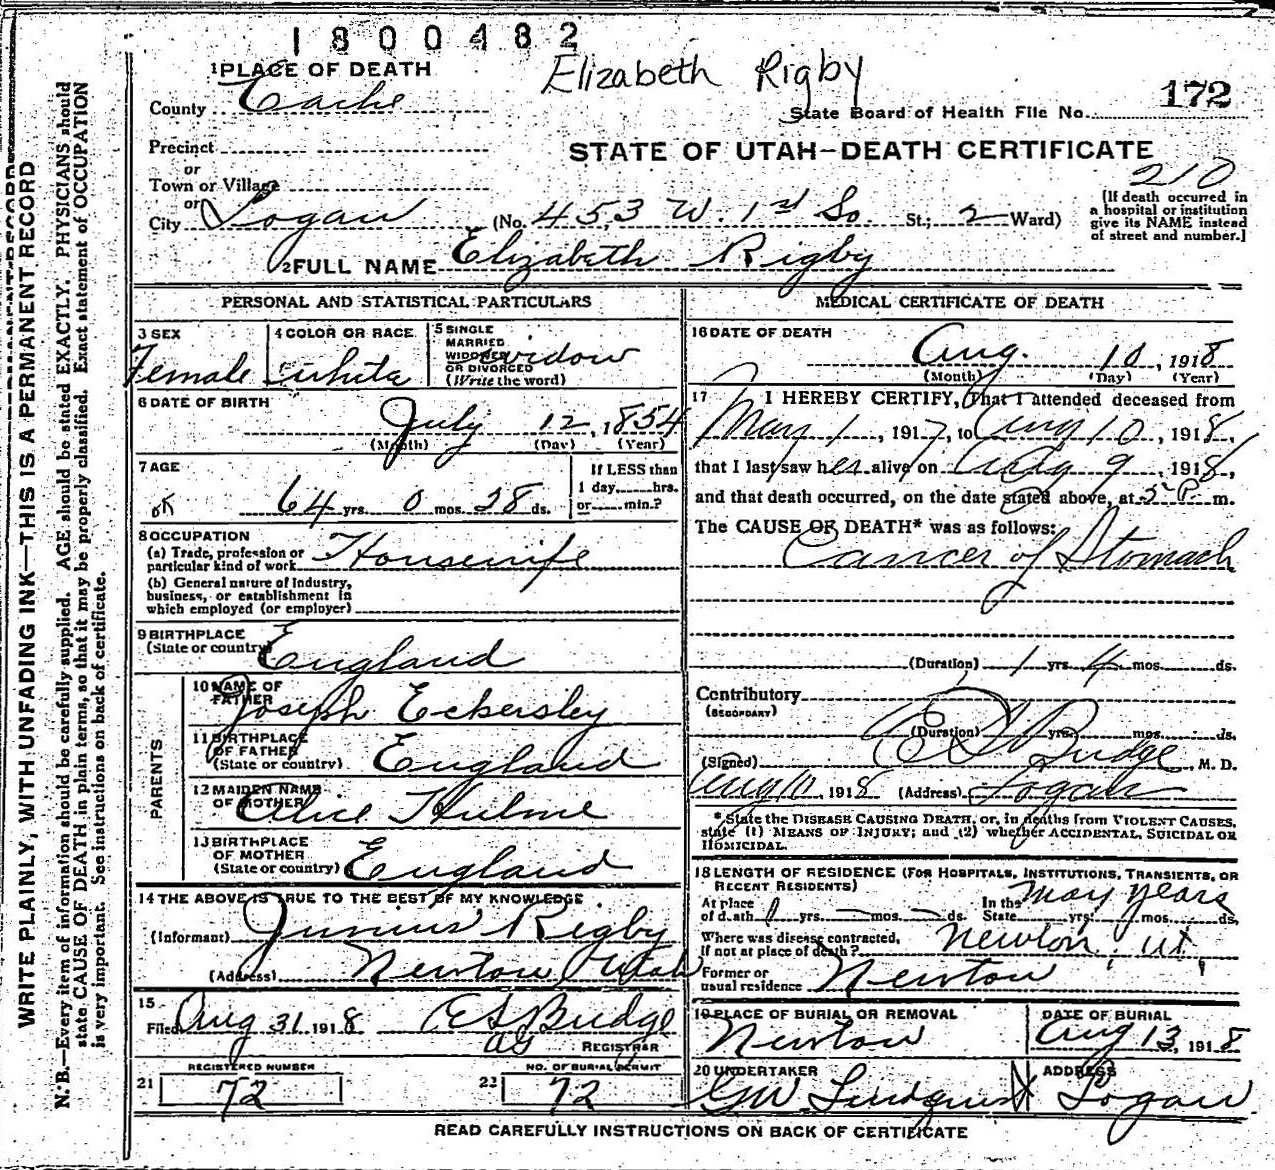 1800482
Elizabeth Rigby
1 PLACE OF DEATH
County Cache
State Board of Health File No. 172
Precinct
or
Town or Village
or
City Logan
STATE OF UTAH—DEATH CERTIFICATE
210
(No. 453 W. 1st So. St.; 2 Ward)
[If death occurred in
a hospital or institution
give its NAME instead
of street and number.]
2 FULL NAME Elizabeth Rigby
PERSONAL AND STATISTICAL PARTICULARS
3 SEX
Female
4 COLOR OR RACE
white
5 SINGLE
MARRIED
WIDOWED
OR DIVORCED
(Write the word)
widow
6 DATE OF BIRTH
July 12, 1854
(Month) (Day) (Year)
7 AGE
64 yrs. 0 mos. 28 ds.
If LESS than
1 day, hrs.
or min.?
8 OCCUPATION
(a) Trade, profession or
particular kind of work Housewife
(b) General nature of Industry,
business, or establishment in
which employed (or employer)
9 BIRTHPLACE
(State or country) England
PARENTS
10 NAME OF
FATHER Joseph Eckersley
11 BIRTHPLACE
OF FATHER
(State or country) England
12 MAIDEN NAME
OF MOTHER Alice Hulme
13 BIRTHPLACE
OF MOTHER
(State or country) England
14 THE ABOVE IS TRUE TO THE BEST OF MY KNOWLEDGE
(Informant) Junius Rigby
(Address) Newton, Utah
15
Filed Aug 31 1918
REGISTRAR
REGISTERED NUMBER
21 72
NO. OF BURIAL PERMIT
22 72
MEDICAL CERTIFICATE OF DEATH
16 DATE OF DEATH
Aug. 10, 1918
(Month) (Day) (Year)
17 I HEREBY CERTIFY, That I attended deceased from
May 1, 1917, to Aug 10, 1918,
that I last saw her alive on Aug 9, 1918,
and that death occurred, on the date stated above, at 5 P. m.
The CAUSE OF DEATH* was as follows:
Cancer of Stomach
(Duration) 1 yrs. 4 mos. ds.
Contributory
(SECONDARY)
(Duration) yrs. mos. ds.
(Signed) Budge, M. D.
Aug 10, 1918 (Address) Logan
* State the DISEASE CAUSING DEATH, or, in deaths from VIOLENT CAUSES,
state (1) MEANS OF INJURY; and (2) whether ACCIDENTAL, SUICIDAL OR
HOMICIDAL.
18 LENGTH OF RESIDENCE (FOR HOSPITALS, INSTITUTIONS, TRANSIENTS, OR
RECENT RESIDENTS)
At place
of death yrs. — mos. — ds.
In the
State many years yrs. mos. ds.
Where was disease contracted,
if not at place of death? Newton, Ut.
Former or
usual residence Newton
19 PLACE OF BURIAL OR REMOVAL
Newton
DATE OF BURIAL
Aug 13, 1918
20 UNDERTAKER
GW Lindquist
ADDRESS
Logan
READ CAREFULLY INSTRUCTIONS ON BACK OF CERTIFICATE
WRITE PLAINLY, WITH UNFADING INK—THIS IS A PERMANENT RECORD
N. B.—Every item of information should be carefully supplied. AGE should be stated EXACTLY. PHYSICIANS should
state CAUSE OF DEATH in plain terms, so that it may be properly classified. Exact statement of OCCUPATION
is very important. See instructions on back of certificate.